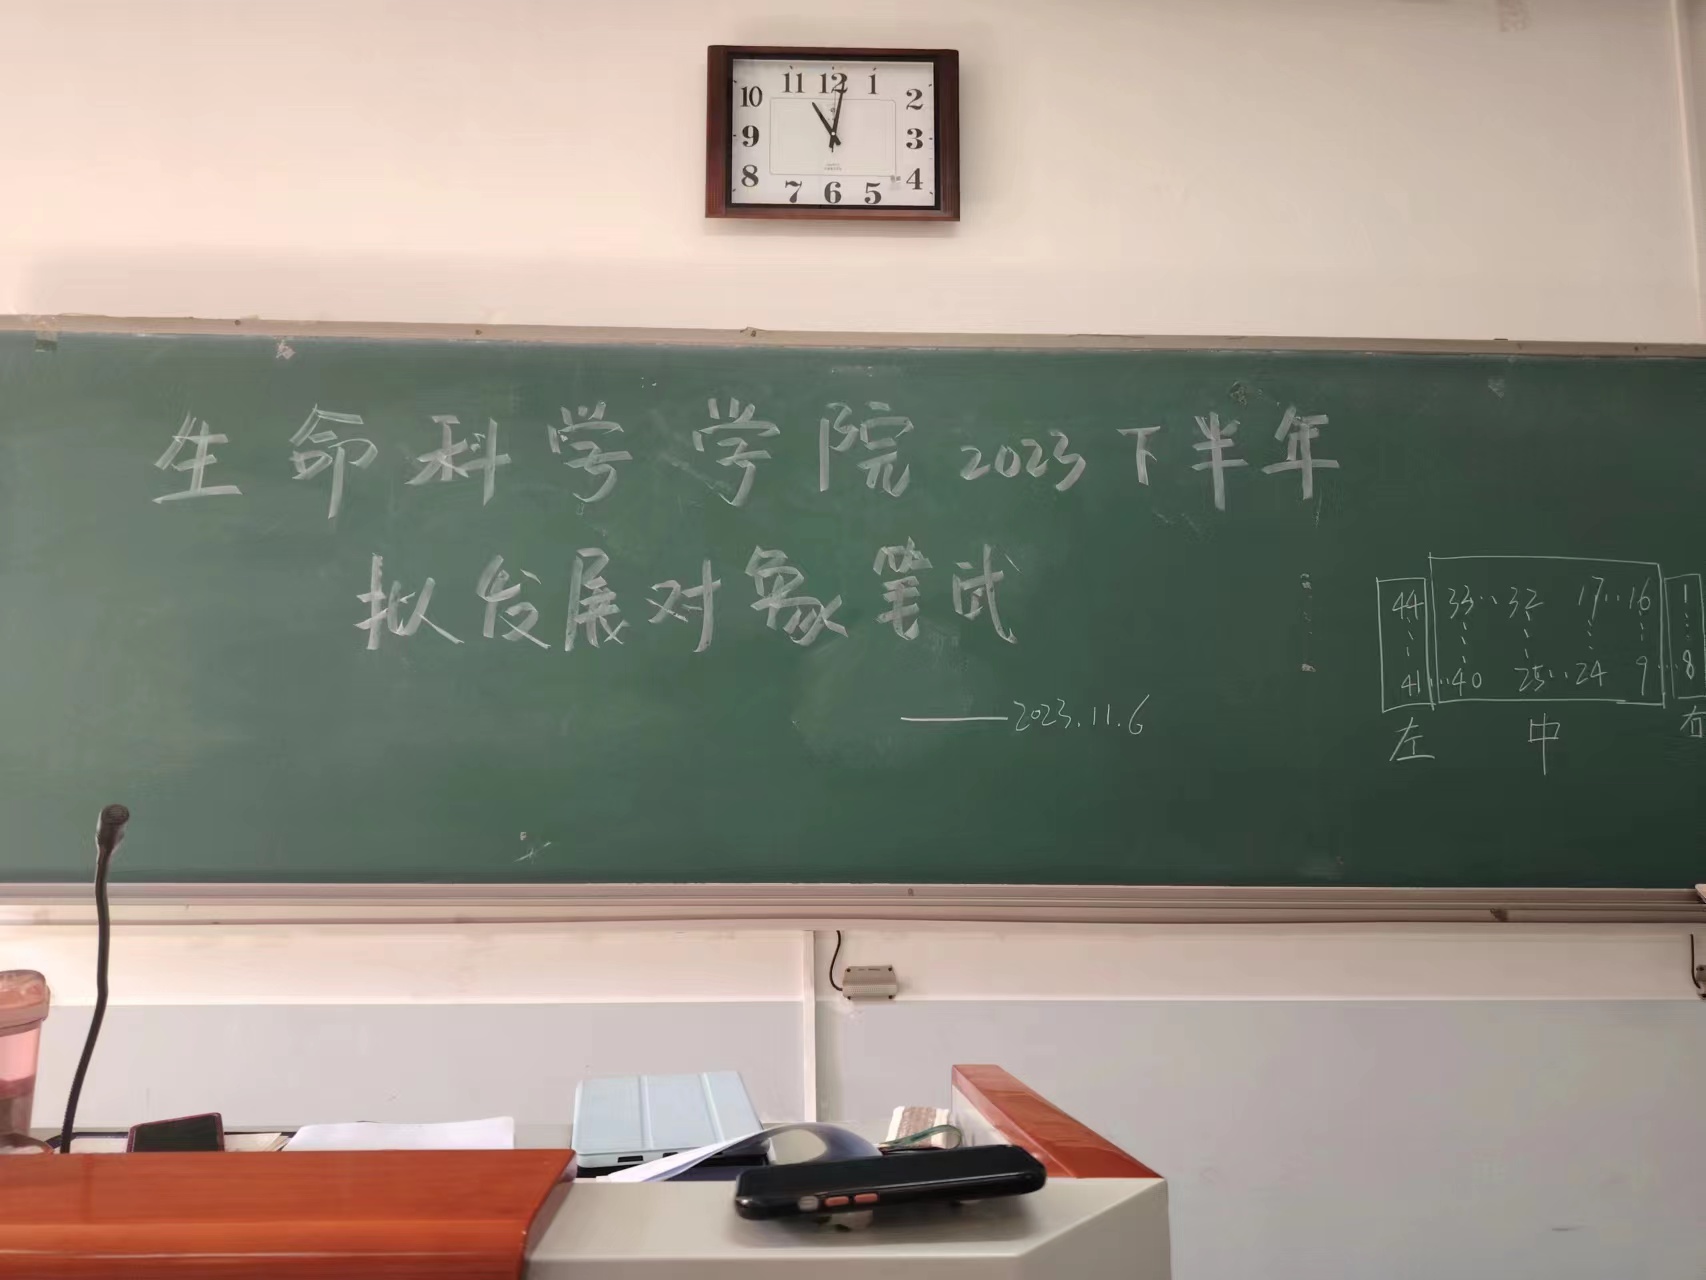 11 12 1
10 2
9 3
8 4
7 6 5
生命科学学院2023下半年
拟发展对象笔试
——2023.11.6
44 33··32 17··16 1
41··40 25··24 9··8
左 中 右